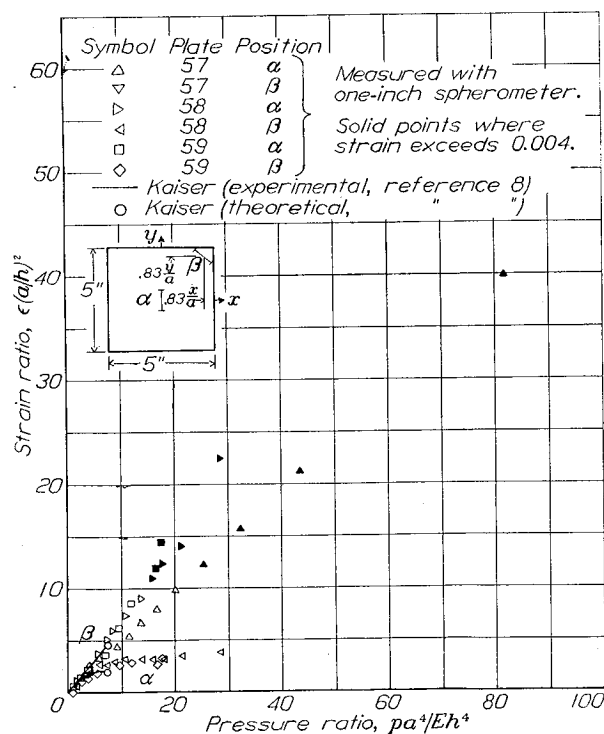 Symbol Plate Position
57 α
57 β
58 α
58 β
59 α
59 β
Measured with
one-inch spherometer.
Solid points where
strain exceeds 0.004.
Kaiser (experimental, reference 8)
Kaiser (theoretical, " ")
y
.83 y/a
β
5"
α .83 x/a
x
5"
β
α
60
50
40
30
20
10
0
0 20 40 60 80 100
Strain ratio, ϵ(a/h)²
Pressure ratio, pa⁴/Eh⁴